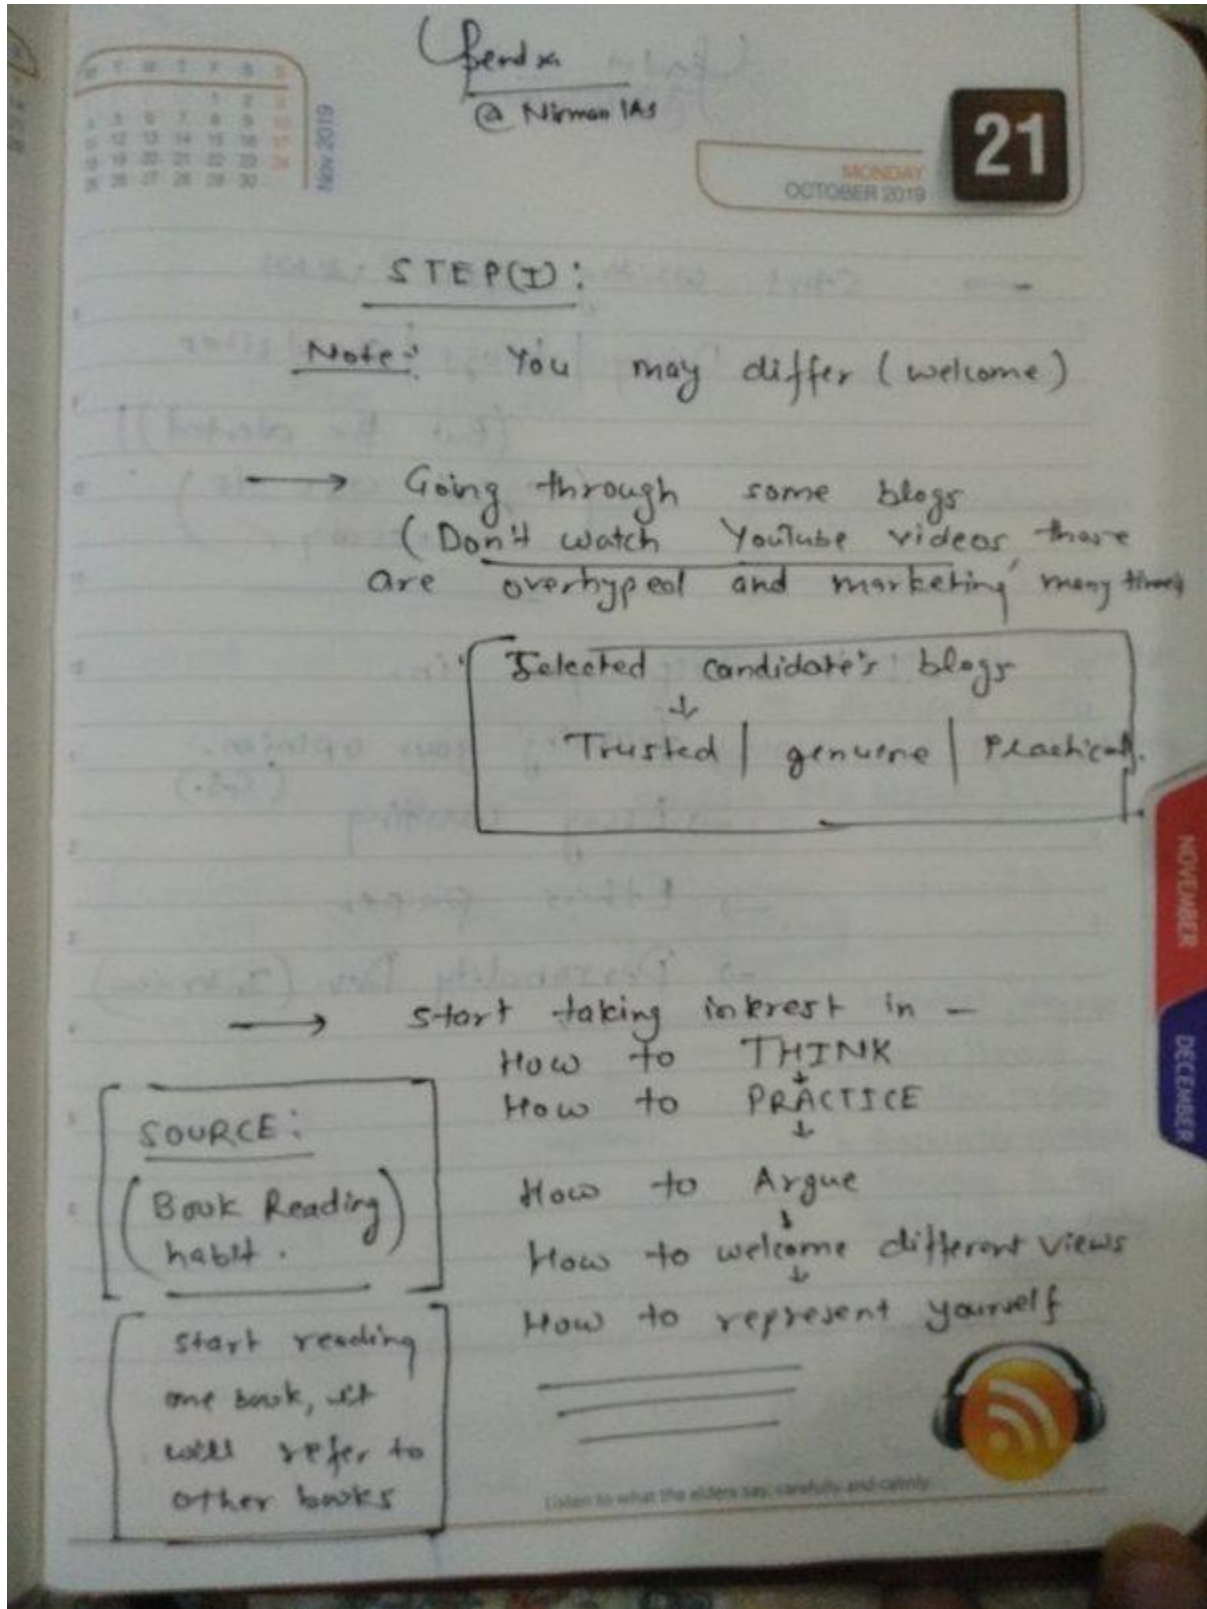 Upendra
@ Nirman IAS
M T W T F S S
1 2 3
4 5 6 7 8 9 10
11 12 13 14 15 16 17
18 19 20 21 22 23 24
25 26 27 28 29 30
Nov 2019
21
MONDAY
OCTOBER 2019
STEP(I):
Note:- You may differ (welcome)
→ Going through some blogs
(Don't watch YouTube videos, those
are overhyped and marketing many times
Selected candidate's blogs
↓
Trusted | genuine | Practical.
→ start taking interest in –
How to THINK
↓
How to PRACTICE
↓
How to Argue
↓
How to welcome different views
↓
How to represent yourself
SOURCE:
(Book Reading
habit.)
start reading
one book, it
will refer to
other books
Listen to what the elders say, carefully and calmly.
NOVEMBER
DECEMBER